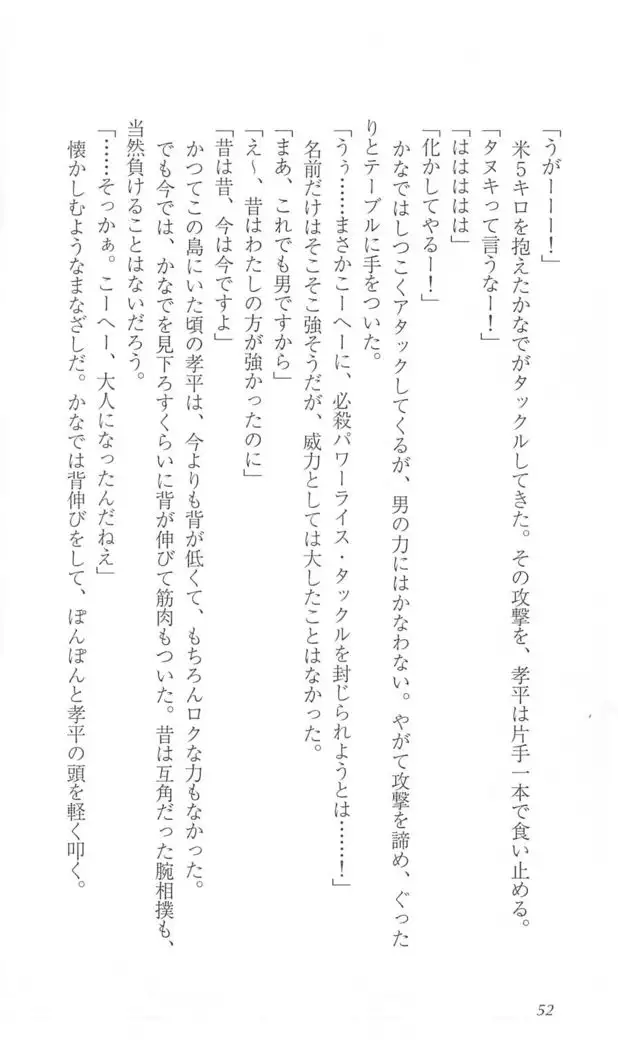 「うがーーー！」
米５キロを抱えたかなでがタックルしてきた。その攻撃を、孝平は片手一本で食い止める。
「タヌキって言うなー！」
「ははははは」
「化かしてやるー！」
かなではしつこくアタックしてくるが、男の力にはかなわない。やがて攻撃を諦め、ぐった
りとテーブルに手をついた。
「うぅ……まさかこーへーに、必殺パワーライス・タックルを封じられようとは……！」
名前だけはそこそこ強そうだが、威力としては大したことはなかった。
「まあ、これでも男ですから」
「え〜、昔はわたしの方が強かったのに」
「昔は昔、今は今ですよ」
かつてこの島にいた頃の孝平は、今よりも背が低くて、もちろんロクな力もなかった。
でも今では、かなでを見下ろすくらいに背が伸びて筋肉もついた。昔は互角だった腕相撲も、
当然負けることはないだろう。
「……そっかぁ。こーへー、大人になったんだねえ」
懐かしむようなまなざしだ。かなでは背伸びをして、ぽんぽんと孝平の頭を軽く叩く。
52